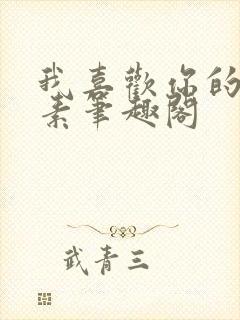 我喜歡你的
素筆趣閣
武青三